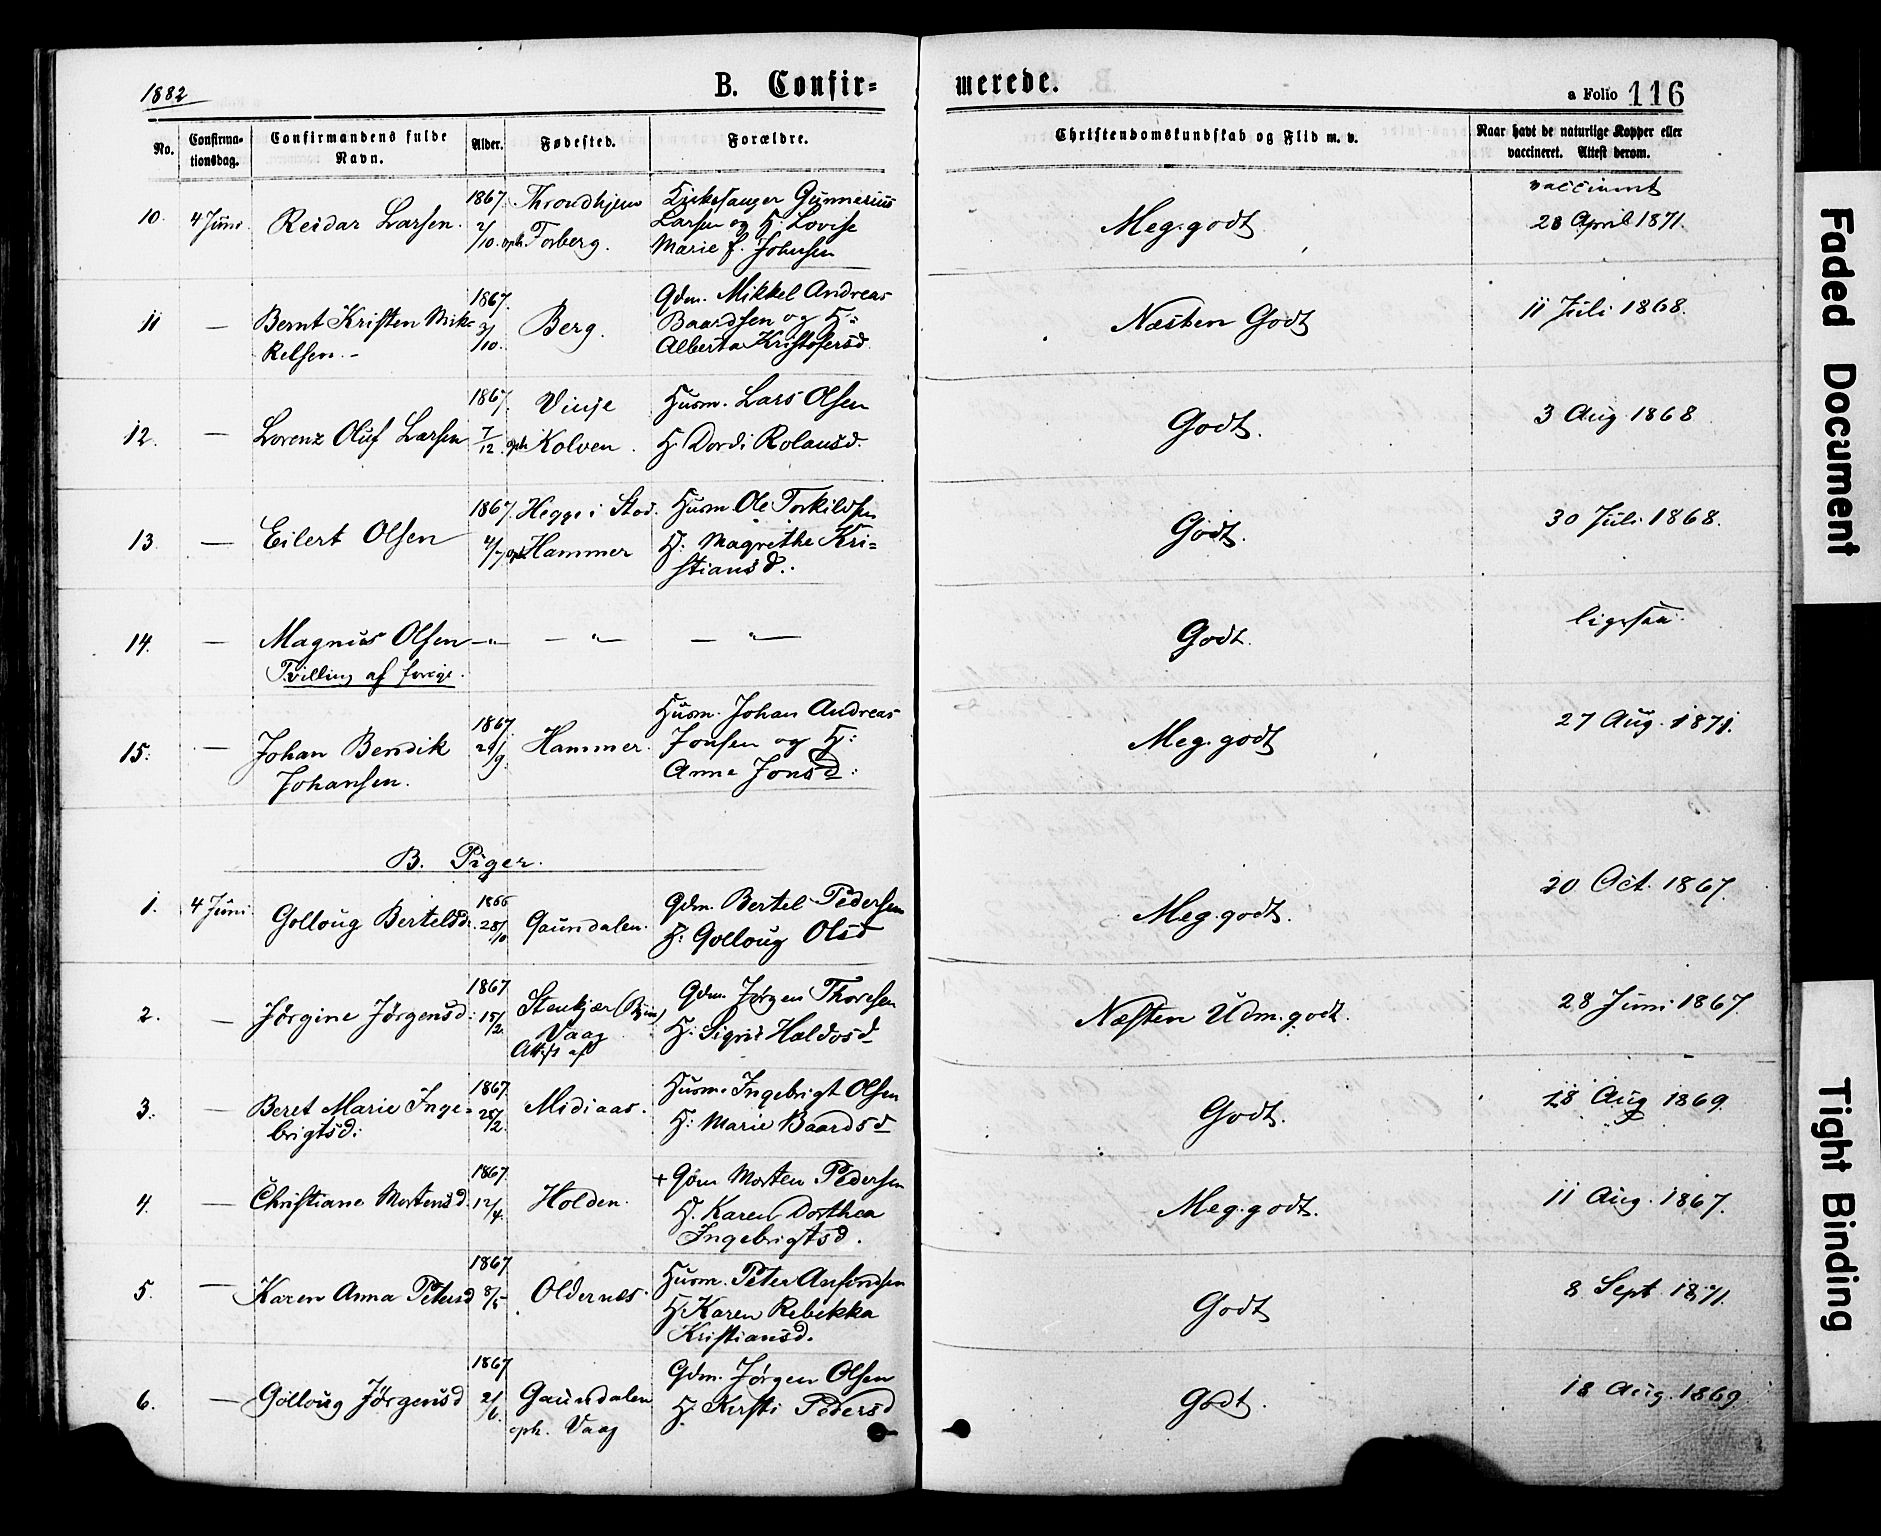 1882
B. Confir=
merede.
a Folio 116
No.
Confirma-
tionsdag.
Confirmandens fulde
Navn.
Alder.
Fødested.
Forældre.
Christendomskundskab og Flid m. v.
Naar havt de naturlige Kopper eller
vaccineret. Attest derom.
10. 4 Juni Reidar Larsen. 1867. 2/10. Throndhjem oph. Forberg. Kirkesanger Gunnerius
Larsen og H. Lovise
Marie f. Johnsen
Meg. godt vaccineret
28 April 1871.
11 — Bernt Kristen Mik-
kelsen. 1867. 3/10. Berg. Gdm. Mikkel Andreas
Baardsen og H:
Alberta Kristofersd
Næsten Godt 11 Juli 1868.
12. — Lorenz Oluf Larsen 1867. 7/12. Vinje
oph. Kolven. Husm. Lars Olsen
H. Dordi Rolansd.
Godt. 3 Aug 1868
13. — Eilert Olsen 1867. 4/7 Hegge i Stod.
oph. Hammer Husm. Ole Torkildsen
H: Magrethe Kri=
stiansd.
Godt. 30 Juli 1868.
14. — Magnus Olsen —"— — "— — "—
Tvilling af forrige.
Godt. ligesaa.
15. — Johan Bendik
Johansen. 1867 29/9. Hammer. Husm. Johan Andreas
Jonsen og H:
Anne Jonsd:
Meg. godt 27 Aug. 1871.
B. Piger.
1. 4 Juni Golloug Bertelsd: 1866 28/10 Gaundalen. Gdm. Bertel Pedersen
H: Golloug Olsd
Meg. godt. 20 Oct. 1867.
2. — Jørgine Jørgensd: 1867 15/2. Stenkjær
Vaag
Attest af Gdm. Jørgen Thoresen
H: Sigrid Haldosd
Næsten Udm. godt. 28 Juni 1867.
3. — Beret Marie Inge=
brigtsd: 1867. 25/2. Midiaas. Husm. Ingebrigt Olsen
H: Marie Baardsd
Godt. 18 Aug 1869.
4. — Christiane Mortensd. 1867. 12/4. Holden. + Gdm Morten Pedersen
H. Karen Dorthea
Ingebrigtsd.
Meg. godt. 11 Aug. 1867.
5. — Karen Anna Petersd 1867 8/5 Oldernæs. Husm. Peter Anfindsen
H. Karen Rebekka
Kristiansd.
Godt 8 Sept 1871.
6. — Golloug Jørgensd 1867 21/6. Gaundalen
oph. Vaag Gdm. Jørgen Olsen
H. Kirsti Pedersd
Godt. 18 Aug. 1869
Faded Document
Tight Binding